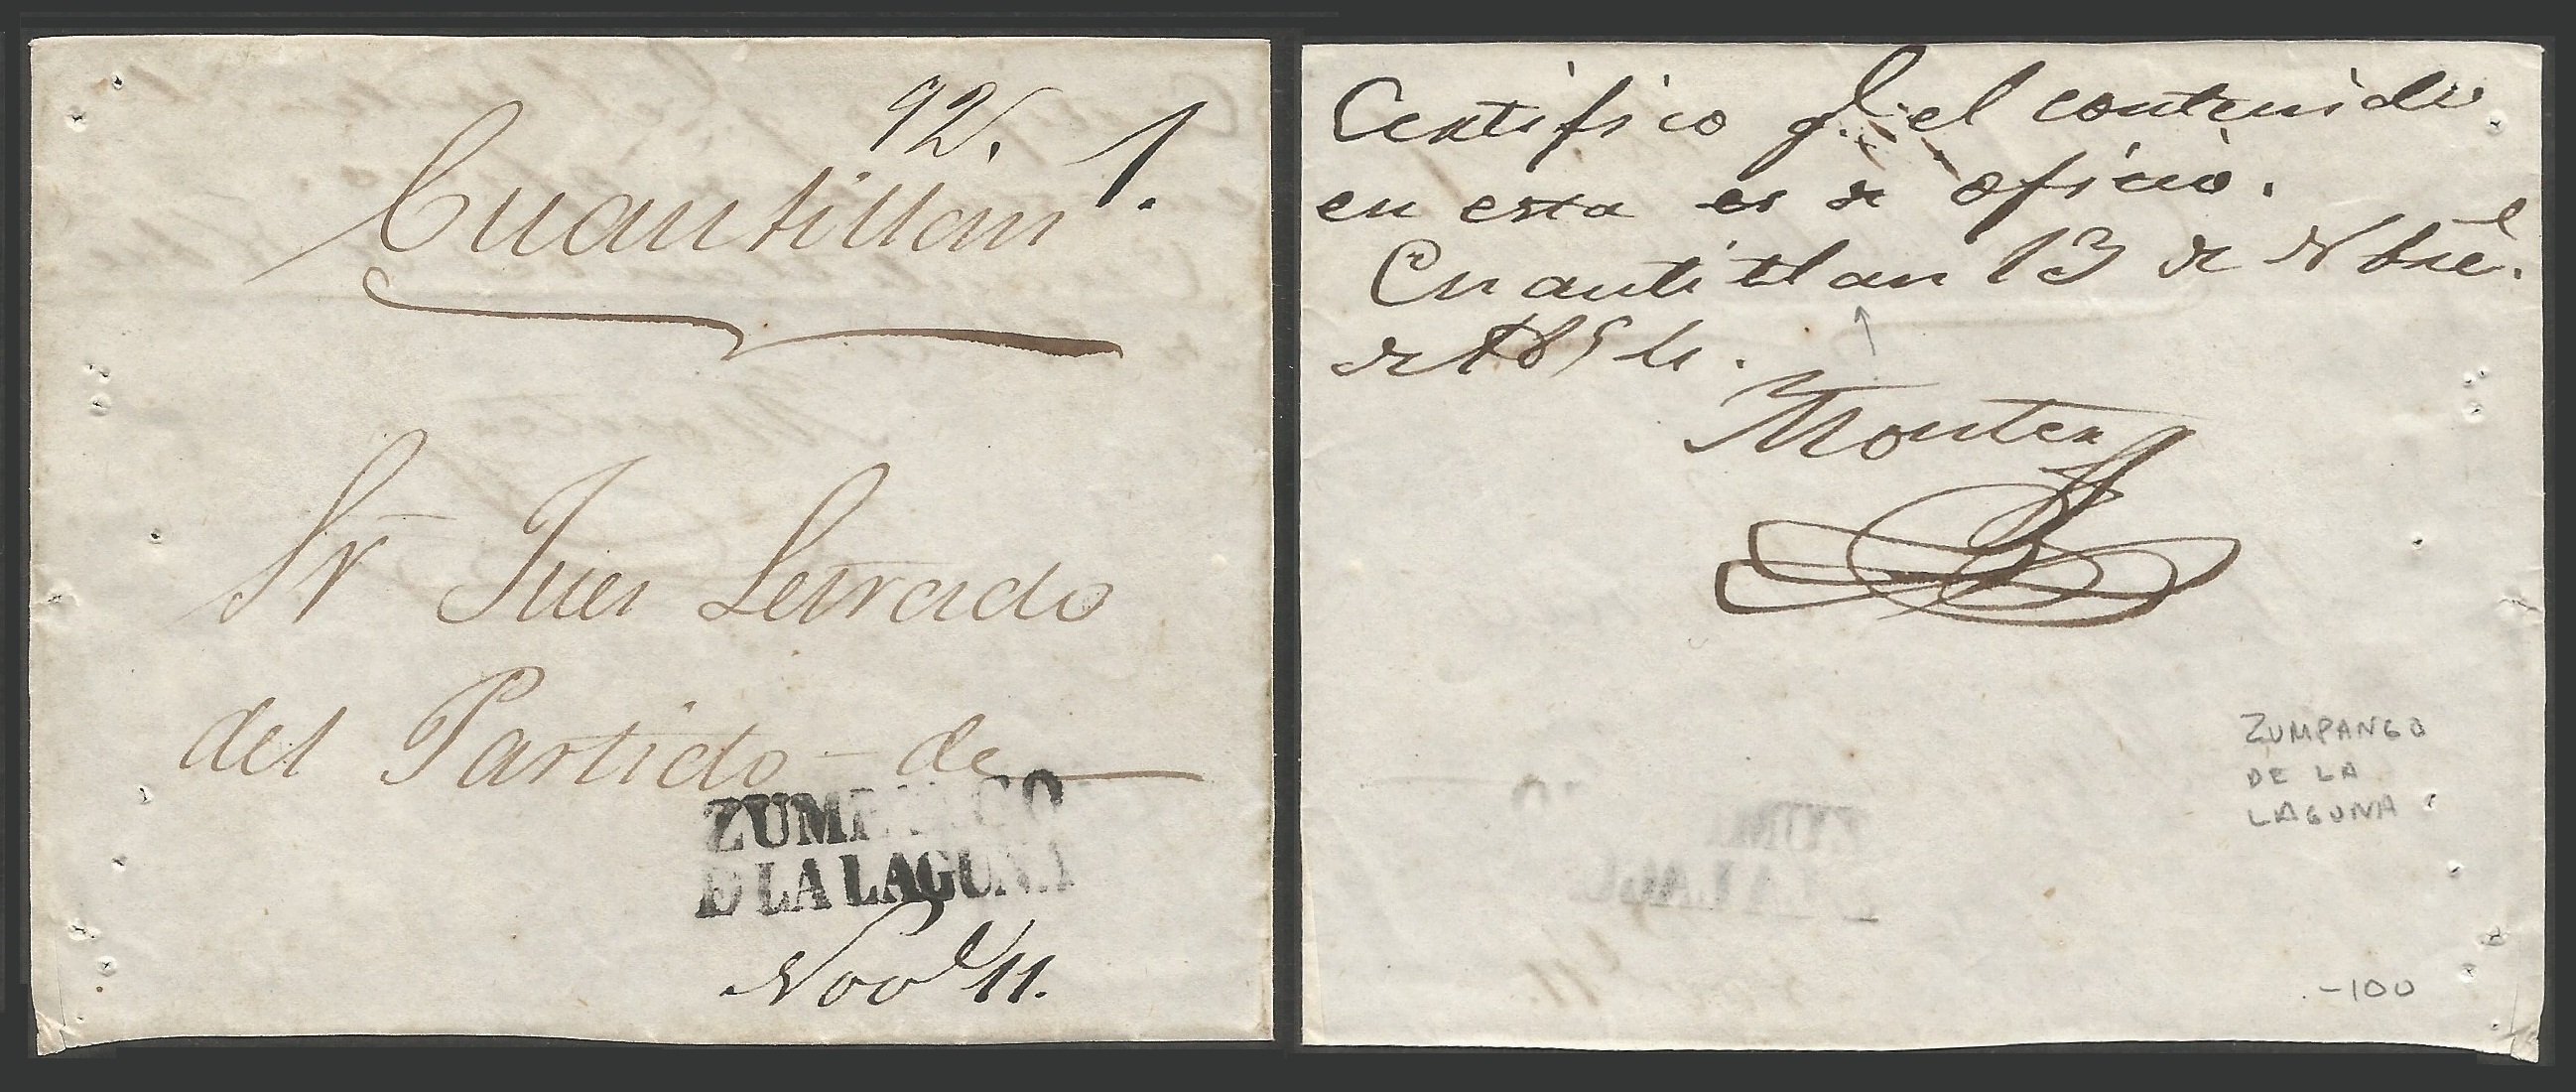 92. 1.
Cuautitlan
Sr Juez Letrado
del Partido - de
ZUMPANGO
D LA LAGUNA
Nove 11.
Certifico qe. el contenido
en esta es de oficio.
Cuautitlan 13 de Nbre.
de 1854.
Montes
ZUMPANGO
DE LA
LAGUNA
-100